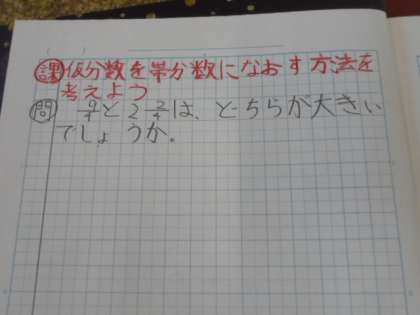 課 仮分数を帯分数になおす方法を
考えよう
問 9/4と2 2/4は、どちらが大きい
でしょうか。